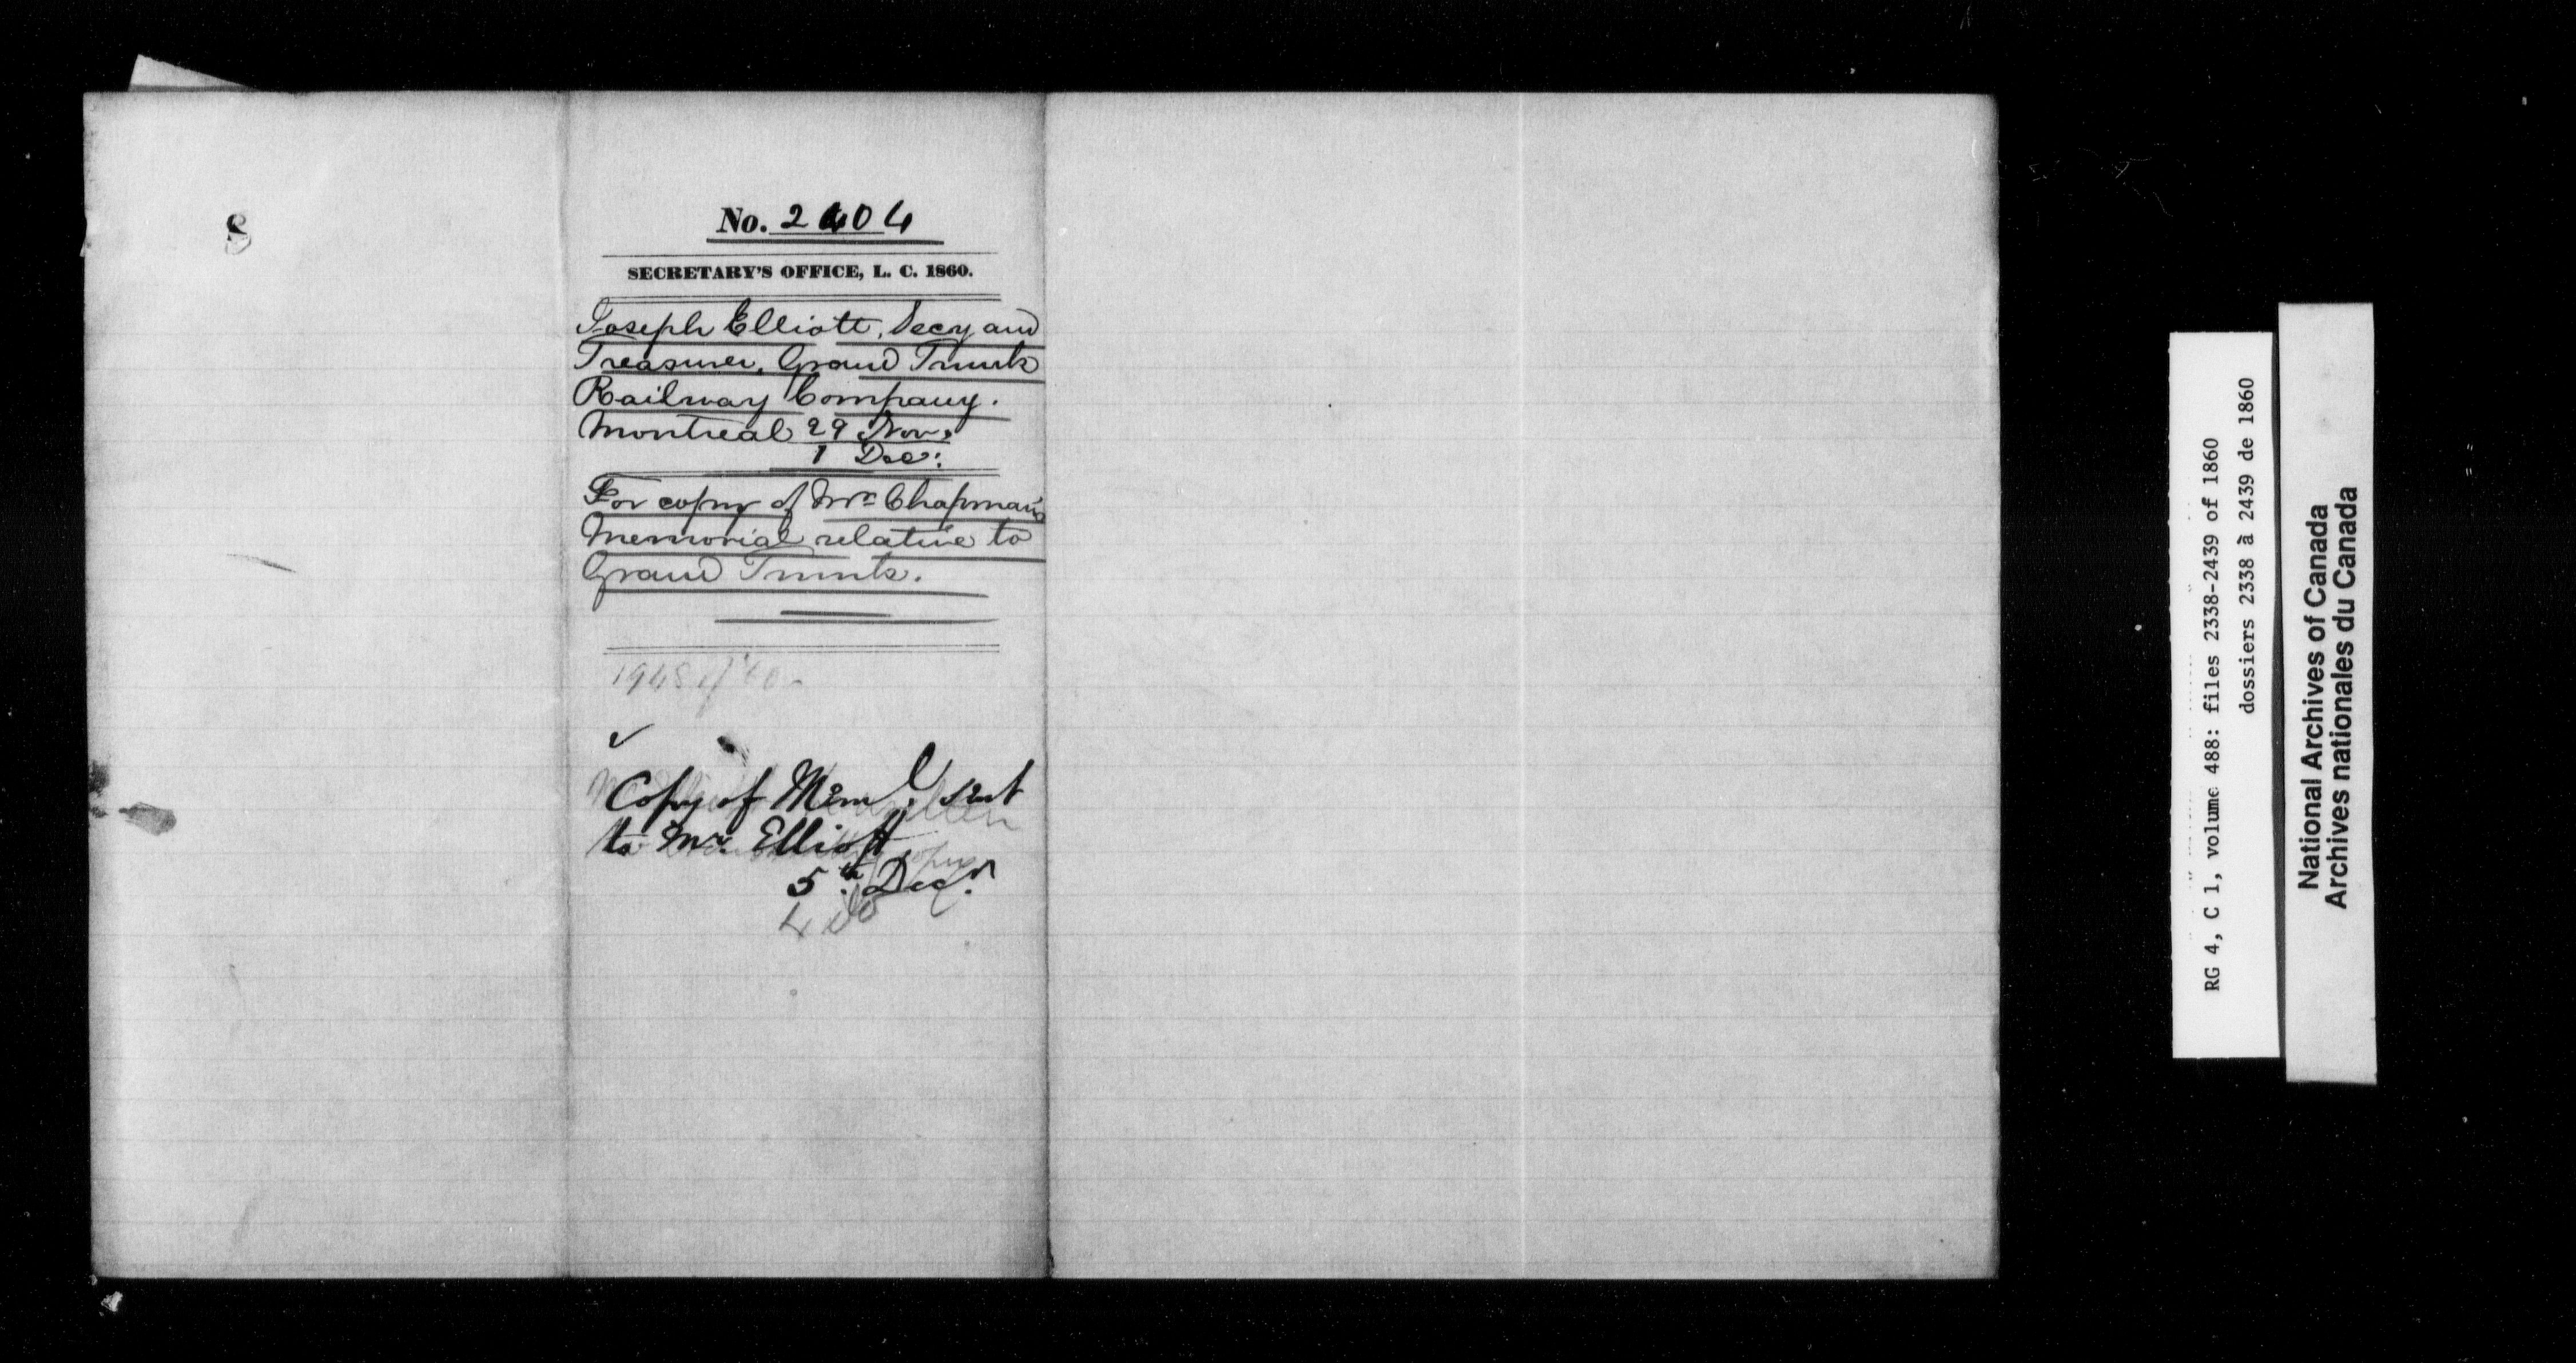 No. 2404
SECRETARY'S OFFICE, L. C. 1860.
Joseph Elliott, Secy and
Treasurer, Grand Trunk
Railway Company.
Montreal 29 Nov.
1 Dec:
For copy of Mr. Chapman's
Memorial relative to
Grand Trunk.
1948 of '60
Copy of Meml. sent
to Mr. Elliott
5th Decr.
RG 4, C 1, volume 488: files 2338-2439 of 1860
dossiers 2338 à 2439 de 1860
National Archives of Canada
Archives nationales du Canada